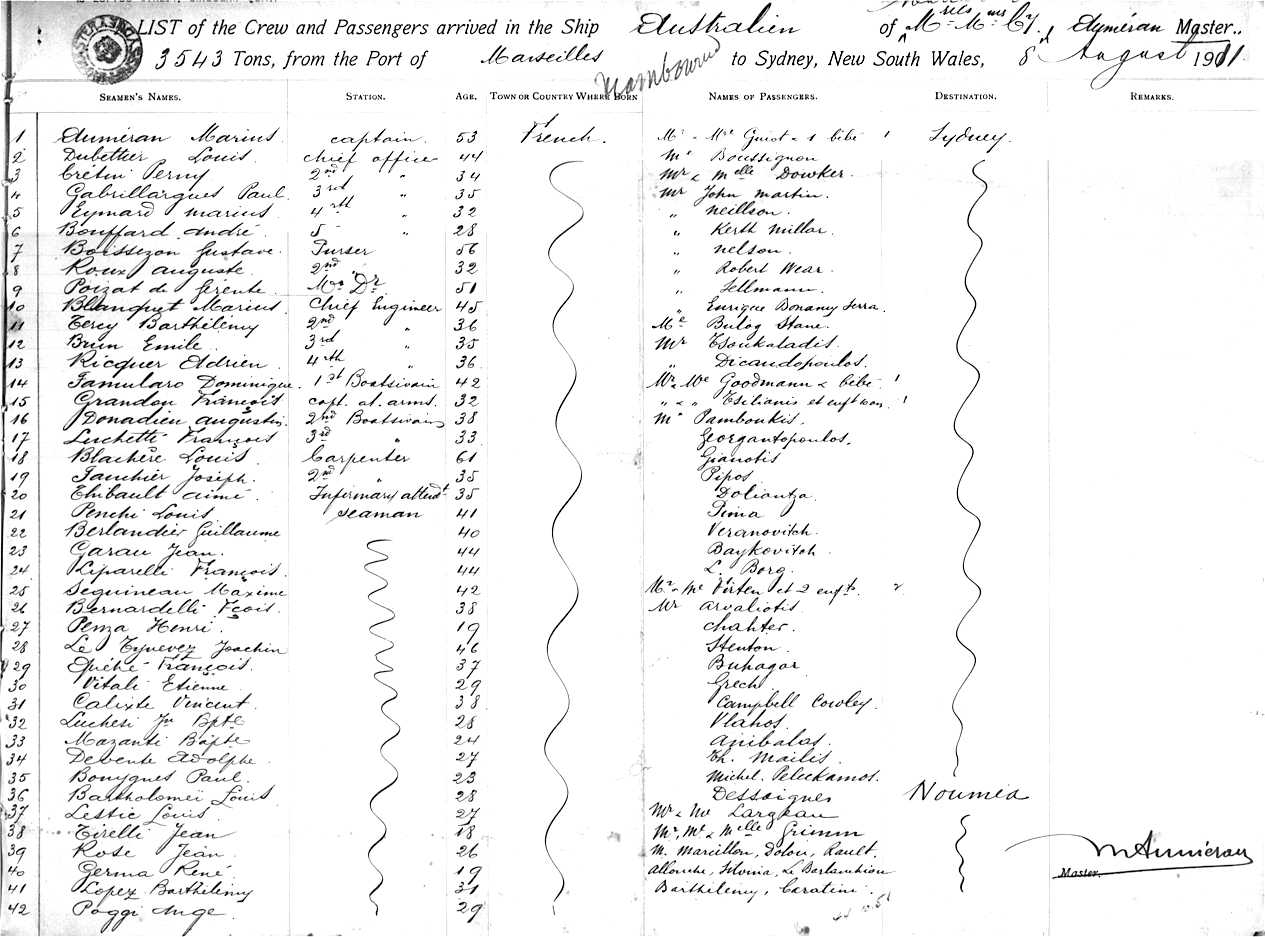 LIST of the Crew and Passengers arrived in the Ship Australien of Mess Mmes Cy, Auméran Master..
3543 Tons, from the Port of Marseilles to Sydney, New South Wales, 8 August 1911.
SEAMEN'S NAMES. STATION. AGE. TOWN OR COUNTRY WHERE BORN NAMES OF PASSENGERS. DESTINATION. REMARKS.
1 Auméran Marius captain. 53 French. Mr & Me Guiot & 1 bébé 1 Sydney.
2 Dubether Louis. chief office 44 Mr Boussignon
3 Crétin Perny 2nd " 34 Mr & Melle Dowker.
4 Gabrillargues Paul. 3rd " 35 Mr John Martin.
5 Eymard Marius. 4th " 32 " Neillson.
6 Bouffard André. 5 " 28 " Kerth Millar.
7 Boissezon Gustave. Purser 56 " Nelson.
8 Roux Auguste. 2nd 32 " Robert Wear.
9 Poizat de Gérente. Dr. 51 " Sellmann.
10 Blanquet Marius. Chief Engineer 45 " Enrique Bonany Serra.
11 Tercy Barthélémy 2nd " 36 Me Bulog Stane.
12 Brun Emile. 3rd " 35 Mr Tsoukaladis.
13 Ricquer Adrien. 4th " 36 " Dicaudopoulos.
14 Famularo Dominique. 1st Boatswain 42 Mr & Me Goodmann & bébé 1
15 Grandou François capt. at. arms. 32 " & " Tsilianis et enft 1
16 Donadieu Augustin. 2nd Boatswain 38 Mr Pamboukis.
17 Luchetti François 3rd " 33 Georgantopoulos.
18 Blachère Louis. Carpenter 61 Gianotis
19 Fauchier Joseph. 2nd " 35 Pipos
20 Thibault Aimé. Infirmary attendt. 35 Doliantza.
21 Penchi Louis seaman 41 Pima
22 Berlandier Guillaume 40 Veranovitch.
23 Garau Jean. 44 Baykovitch.
24 Liparelli François. 44 L. Borg.
25 Seguineau Maxime 42 Mr & Me Virten et 2 enfts. 2
26 Bernardelli Fçois. 38 Mr Arvaliotis.
27 Penza Henri. 19 Chahter.
28 Le Tynevez Joachim 46 Stenton.
29 Quéhé François. 37 Buhagar
30 Vitali Etienne. 29 Grech.
31 Calixte Vincent. 38 Campbell Cowley.
32 Lucheri Jn Bpte 28 Vlahos.
33 Mazanti Bapte 24 Anibalas.
34 Devente Adolphe. 27 Th. Mailis.
35 Bouygues Paul. 23 Michel. Peleckamos.
36 Bartholomeï Louis 28 Dessaignes Noumea
37 Lestic Louis. 27 Mr & Me Largeau
38 Tirelli Jean 18 Mr, Me & Melle Grimm
39 Rose Jean. 26 M. Marcillon, Dolou, Rault. MAuméran
40 Germa René. 19 Allouche, Silvina, Le Berlanchion Master.
41 Lopez Barthélémy 31 Barthélemy, Caratini.
42 Poggi Ange. 29